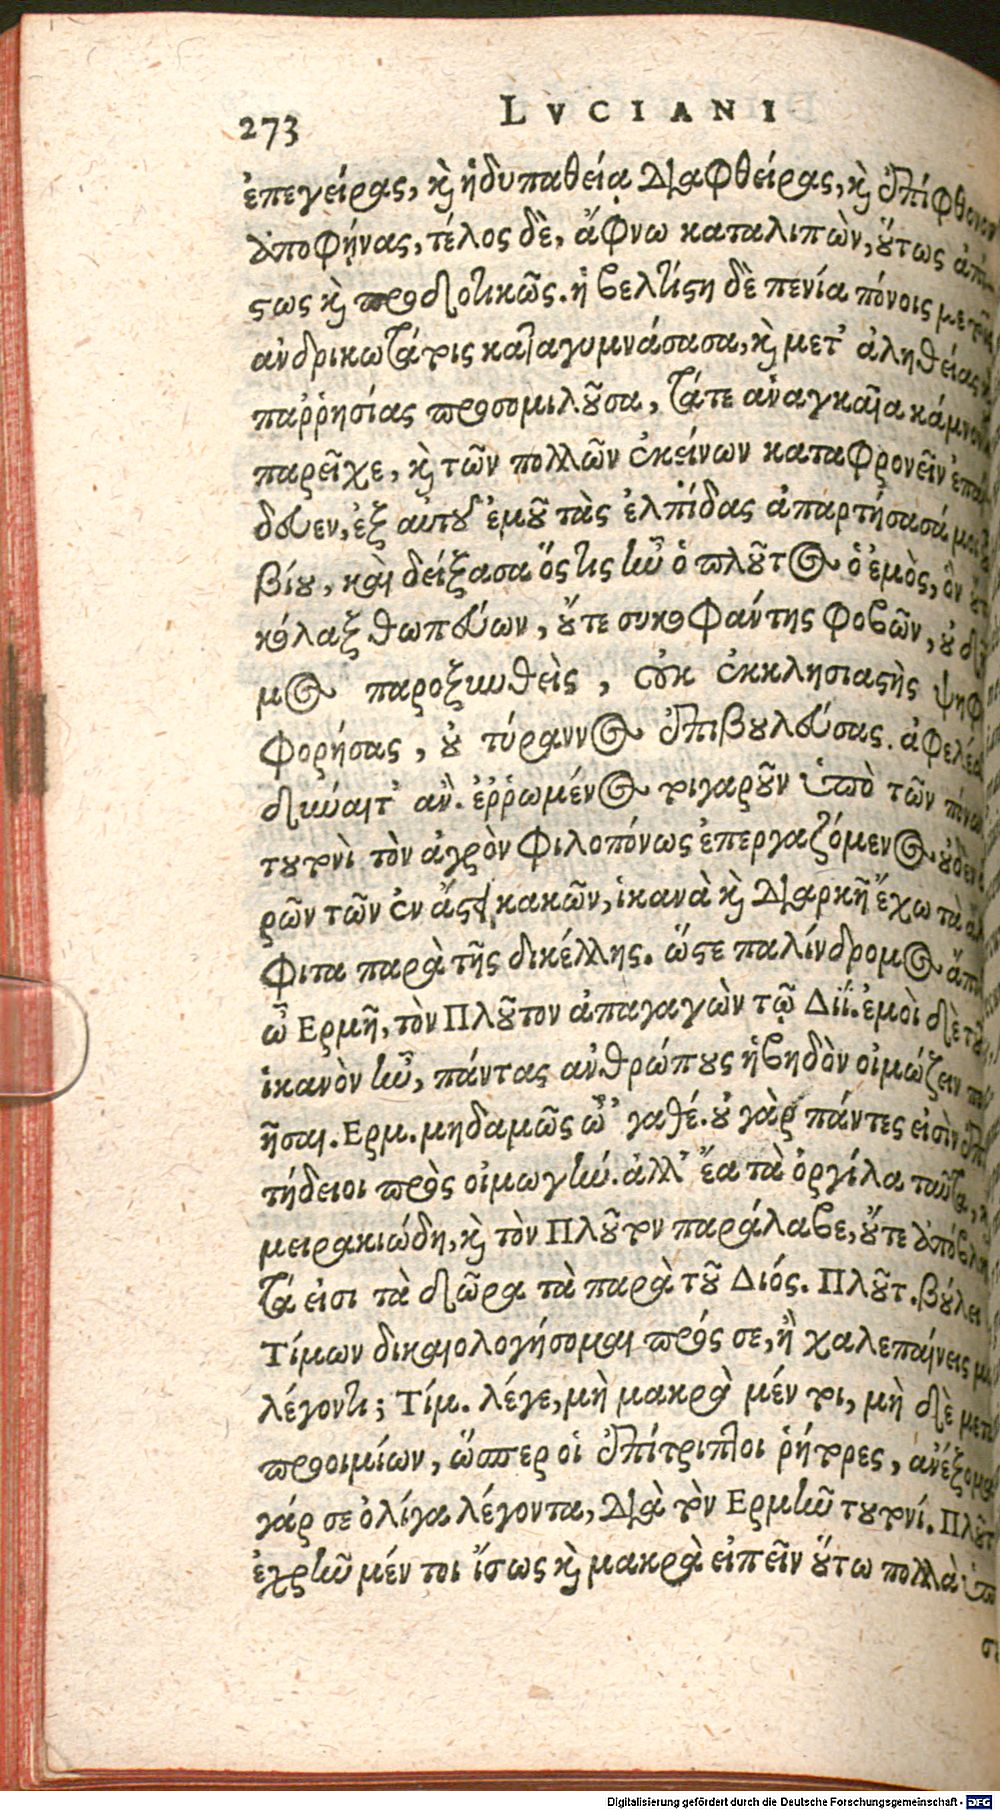 273 LVCIANI
ἐπεγείρας, καὶ ἡδυπαθείᾳ διαφθείρας, καὶ ἐπίφθονον
ἀποφήνας, τέλος δὲ, ἄφνω καταλιπὼν, οὕτως
ςως καὶ προδοτικῶς. ἡ βελτίςη δὲ πενία πόνοις με
ἀνδρικωτάτοις καταγυμνάσασα, καὶ μετ' ἀληθείας
παῤῥησίας προσομιλοῦσα, τάτε ἀναγκαῖα κάμνον
παρεῖχε, καὶ τῶν πολλῶν ἐκείνων καταφρονεῖν ἐπαί
δευεν, ἐξ αὐτοῦ ἐμοῦ τὰς ἐλπίδας ἀπαρτήσασά μοι
βίου, καὶ δείξασα ὅςτις ἦν ὁ πλοῦτος ὁ ἐμὸς, ὃν
κόλαξ θωπεύων, οὔτε συκοφάντης φοβῶν, οὐ δῆ
μος παροξυνθεὶς, οὐκ ἐκκλησιαςὴς ψηφ
φορήσας, οὐ τύραννος ἐπιβουλεύσας. ἀφελέσ
δύναιτ' ἄν. ἐῤῥωμένος τοιγαροῦν ὑπὸ τῶν πόνων
τουτονὶ τὸν ἀγρὸν φιλοπόνως ἐπεργαζόμενος οὐδὲν
ρῶν τῶν ἐν ἄςει κακῶν, ἱκανὰ καὶ διαρκῆ ἔχω τὰ ἄλ
φιτα παρὰ τῆς δικέλλης. ὥςε παλίνδρομος ἄπι
ὦ Ερμῆ, τὸν Πλοῦτον ἀπαγαγὼν τῷ Διΐ. ἐμοὶ δὲ τοῦ
ἱκανὸν ἦν, πάντας ἀνθρώπους ἡβηδὸν οἰμώζειν ποι
ῆσαι. Ερμ. μηδαμῶς ὦ 'γαθέ. οὐ γὰρ πάντες εἰσὶν ἐπι
τήδειοι πρὸς οἰμωγήν. ἀλλ' ἔα τὰ ὀργίλα ταῦτα,
μειρακιώδη, καὶ τὸν Πλοῦτον παράλαβε, οὔτε ἀπόβλη
τά εἰσι τὰ δῶρα τὰ παρὰ τοῦ Διός. Πλοῦτ. βούλει
Τίμων δικαιολογήσομαι πρός σε, ἢ χαλεπαίνεις μοι
λέγοντι; Τίμ. λέγε, μὴ μακρὰ μέν τοι, μὴ δὲ μετὰ
προοιμίων, ὥσπερ οἱ ἐπίτριπτοι ῥήτορες, ἀνέξομαι
γάρ σε ὀλίγα λέγοντα, διὰ τὸν Ερμῆν τουτονί. Πλοῦτ
ἐχρῆν μέν τοι ἴσως καὶ μακρὰ εἰπεῖν οὕτω πολλὰ ὑπὸ
Digitalisierung gefördert durch die Deutsche Forschungsgemeinschaft - DFG